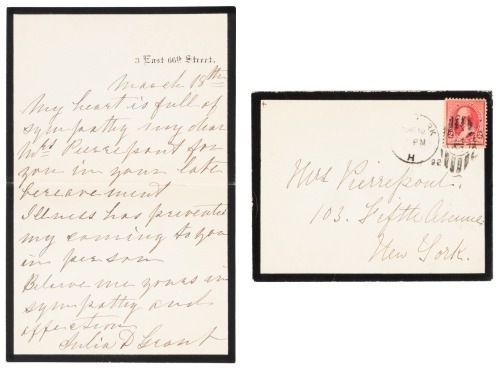 3 East 66th Street.
March 18th
My heart is full of
sympathy my dear
Mrs Pierrepont for
you in your late
bereavement
Illness has prevented
my coming to you
in person
Believe me yours in
sympathy and
affection
Julia D Grant
PM
H
92
Mrs Pierrepont.
103. Fifth Avenue
New York.